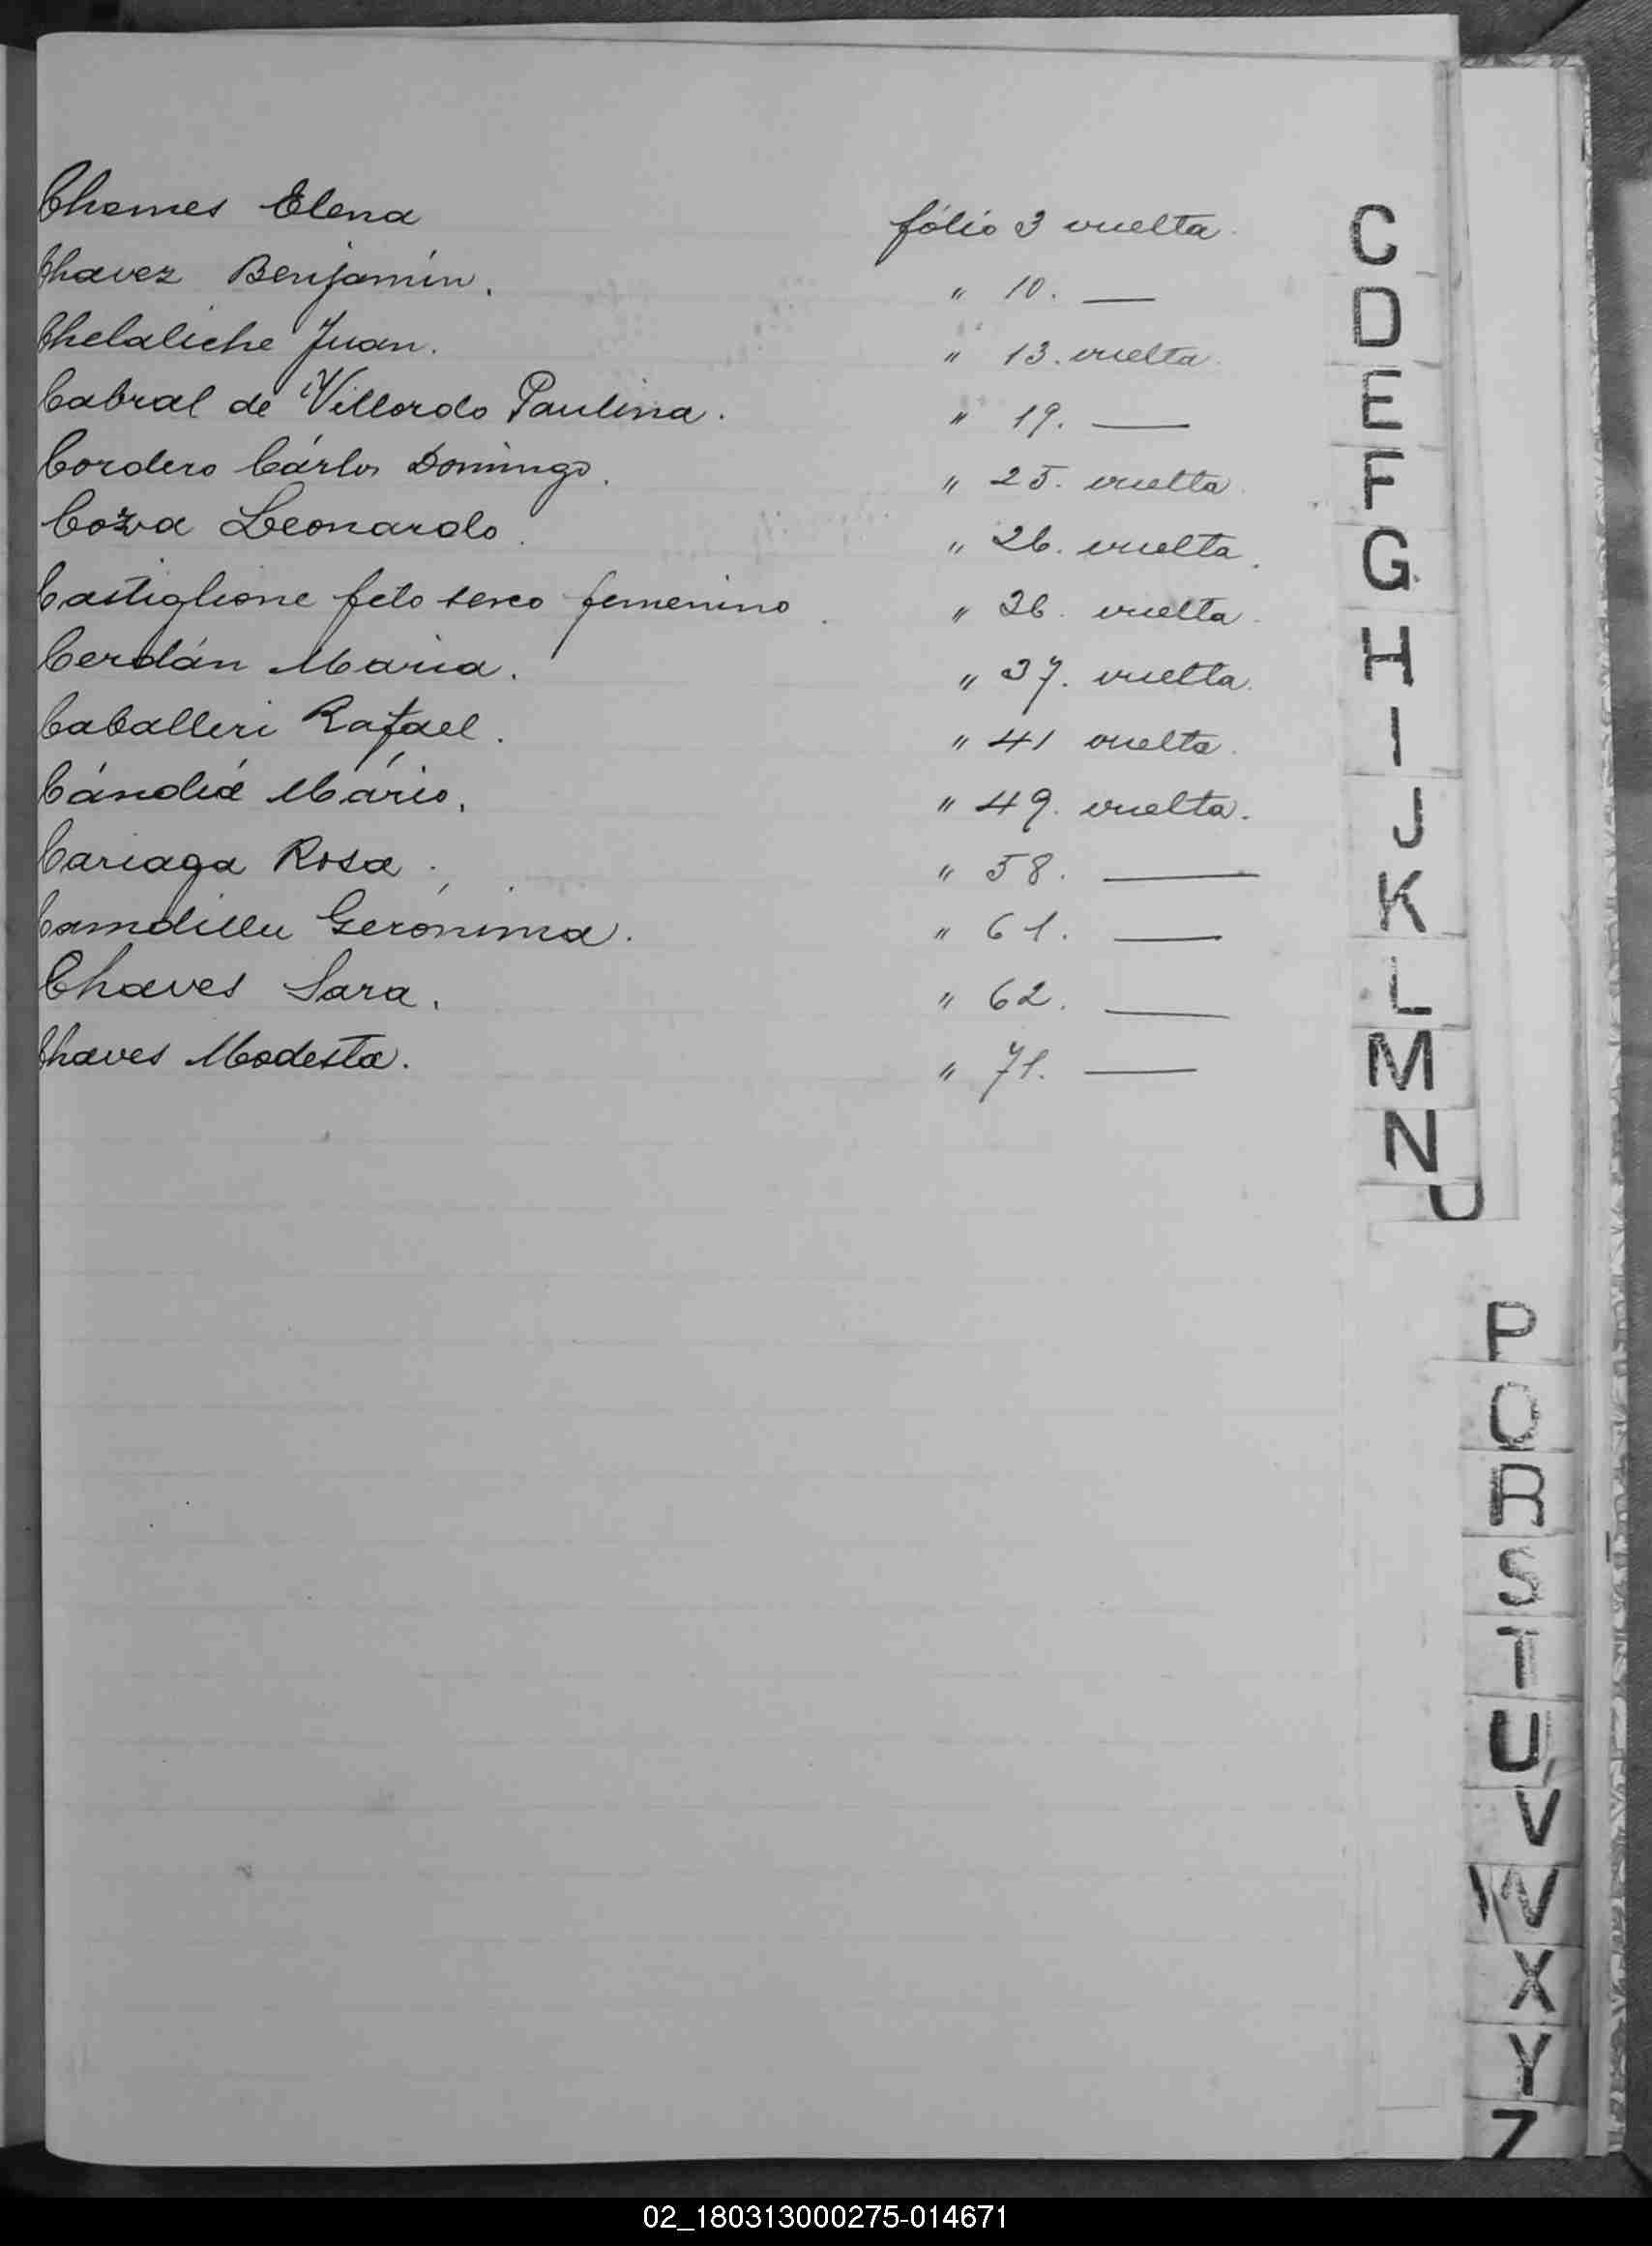 Chemes Elena fólio 3 vuelta.
Chavez Benjamín. " 10. —
Chelaliche Juan. " 13. vuelta.
Cabral de Villordo Paulina. " 19. —
Cordero Cárlos Domingo. " 25. vuelta.
Leonardo. " 26. vuelta.
Castiglione feto sexo femenino. " 36. vuelta.
Cerdán María. " 37. vuelta.
Caballeri Rafael. " 41 vuelta.
Cándia Mário. " 49. vuelta.
Cariaga Rosa. " 58. —
Gerónima. " 61. —
Chaves Sara. " 62. —
Chaves Modesta. " 71. —
C
D
E
F
G
H
I
J
K
L
M
N
P
R
S
T
U
V
W
X
Y
Z
02_180313000275-014671